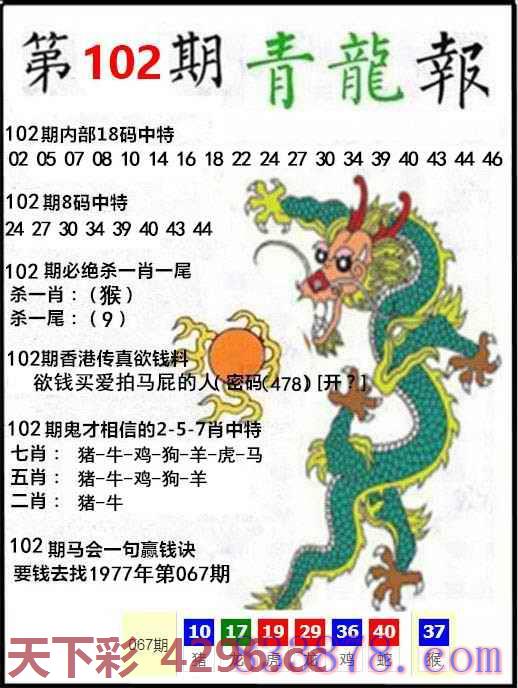 第102期青龍報
102期内部18码中特
02 05 07 08 10 14 16 18 22 24 27 30 34 39 40 43 44 46
102期8码中特
24 27 30 34 39 40 43 44
102期必绝杀一肖一尾
杀一肖：（猴）
杀一尾：（9）
102期香港传真欲钱料
欲钱买爱拍马屁的人(密码(478)[开？]
102期鬼才相信的2-5-7肖中特
七肖： 猪-牛-鸡-狗-羊-虎-马
五肖： 猪-牛-鸡-狗-羊
二肖： 猪-牛
102期马会一句赢钱诀
要钱去找1977年第067期
067期 10 17 19 29 36 40 37
猪 龙 虎 龙 鸡 蛇 猴
天下彩 4296.cc